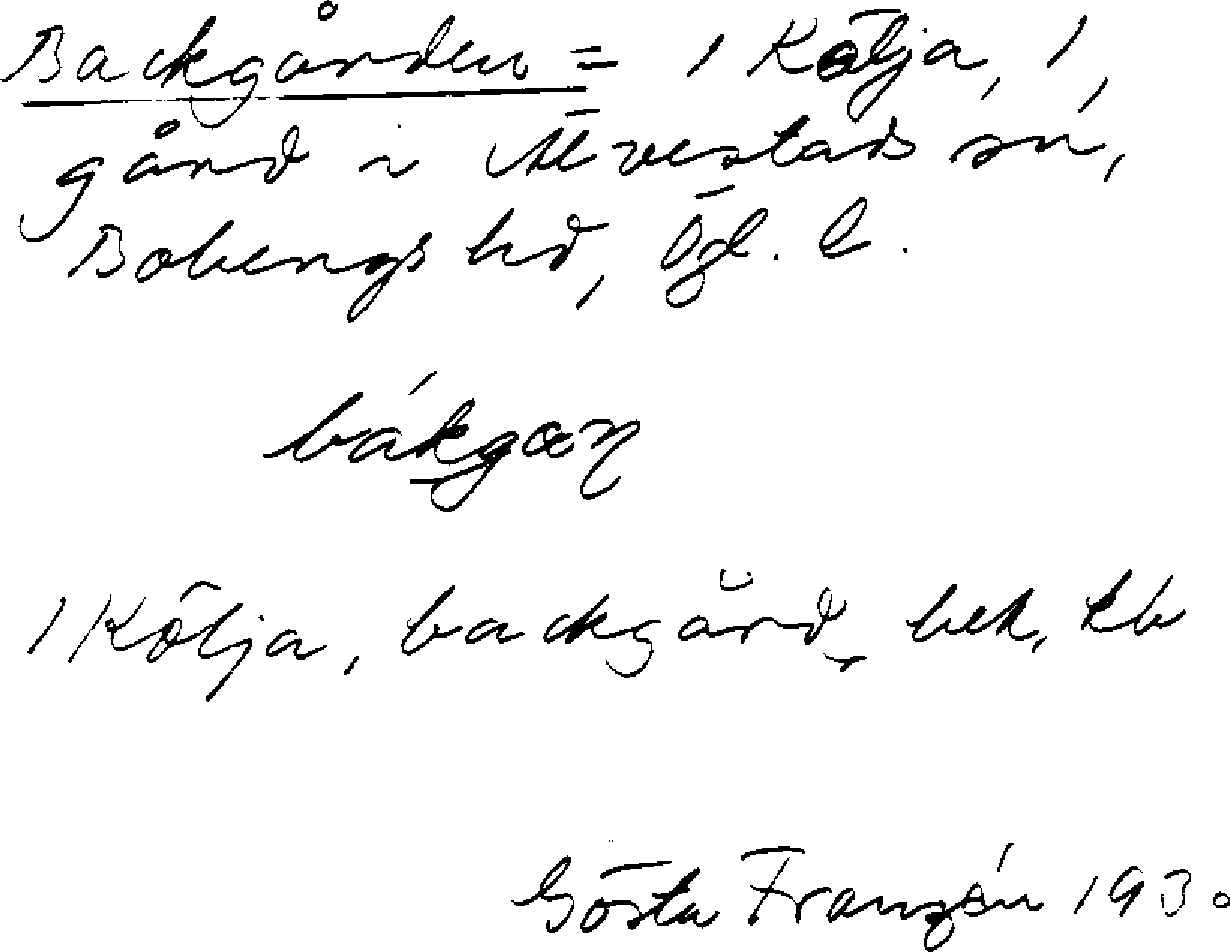 Backgården = 1 Kölja, 1,
gård i Älvestads sn,
Bobergs hd, Ögl. l.
bákgaɳ
1 Kölja, backgård, bek, kb
Gösta Franzén 1930